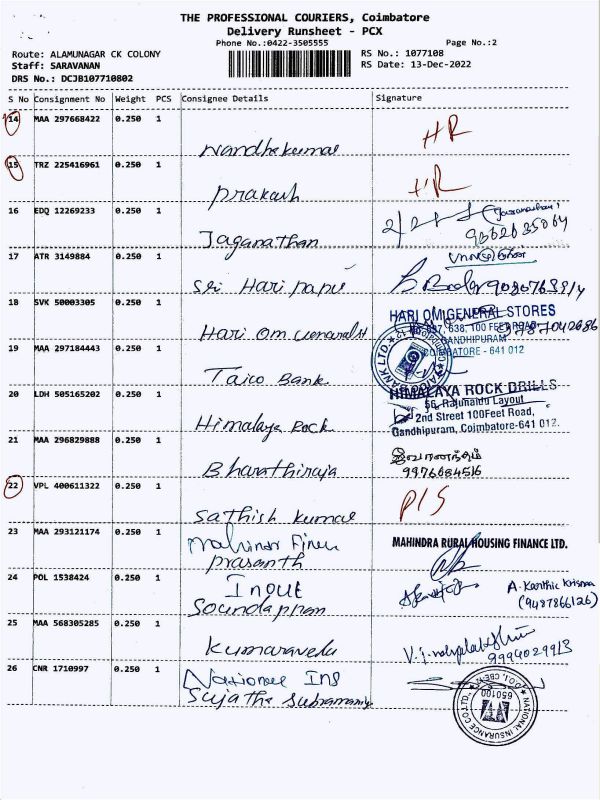 THE PROFESSIONAL COURIERS, Coimbatore
Delivery Runsheet - PCX
Phone No.:0422-3505555
Page No.:2
Route: ALAMUNAGAR CK COLONY
RS No.: 1077108
Staff: SARAVANAN
RS Date: 13-Dec-2022
DRS No.: DCJB107710802
S No Consignment No Weight PCS Consignee Details Signature
14 MAA 297668422 0.250 1
Nandhakumar HR
15 TRZ 225416961 0.250 1
Prakash HR
16 EDQ 12269233 0.250 1
Jaganathan
17 ATR 3149884 0.250 1
Sri Hari
18 SVK 50003305 0.250 1
HARI OM GENERAL STORES
638, 100 FEET ROAD
GANDHIPURAM
COIMBATORE - 641 012
Hari Om
19 MAA 297184443 0.250 1
Taico Bank
20 LDH 505165202 0.250 1
HIMALAYA ROCK DRILLS
56, Rajunaidu Layout
2nd Street 100Feet Road,
Gandhipuram, Coimbatore-641 012.
Himalaya Rock
21 MAA 296829888 0.250 1
Bharathiraja
9976684516
22 VPL 400611322 0.250 1
Sathish Kumar
23 MAA 293121174 0.250 1
MAHINDRA RURAL HOUSING FINANCE LTD.
Prasanth
24 POL 1538424 0.250 1
A. Karthic Krisnaa
(9487866126)
25 MAA 568305285 0.250 1
Kumaravelu
9994029913
26 CNR 1710997 0.250 1
Sujatha
NATIONAL INSURANCE CO. LTD.
650100